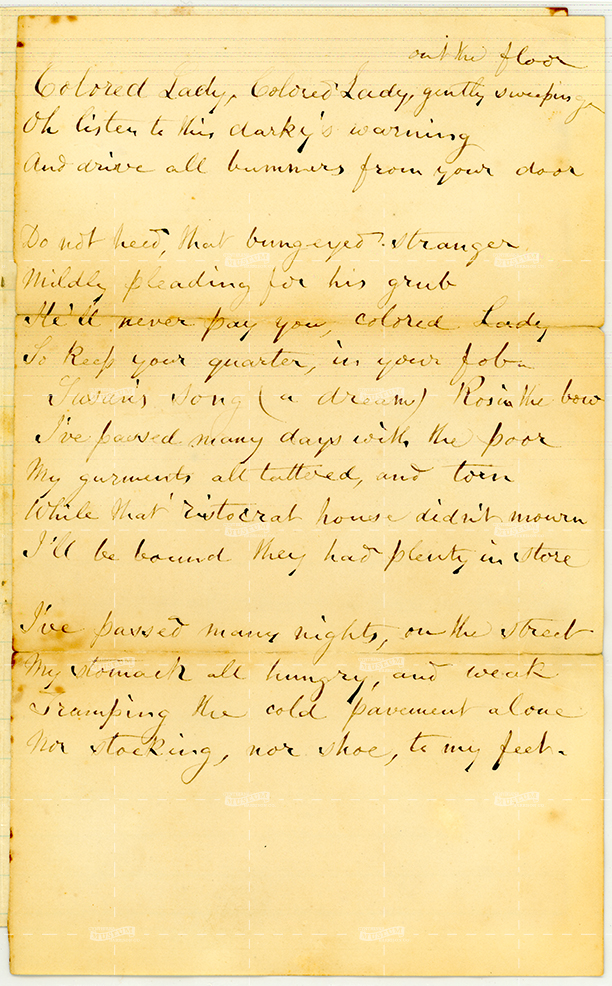 out the floor
Colored Lady, Colored Lady, gently sweeping
Oh listen to this darky's warning
And drive all bummers from your door
Do not heed, that bungeyed stranger
Mildly pleading for his grub
He'll never pay you, colored Lady
So keep your quarter, in your fob
song (a dream) Rosin the bow
I've passed many days with the poor
My garments all tattered, and torn
While that 'ristocrat house didn't mourn
I'll be bound they had plenty in store
I've passed many nights, on the street
My stomack all hungry, and weak
Tramping the cold pavement alone
Nor stocking, nor shoe, to my feet.